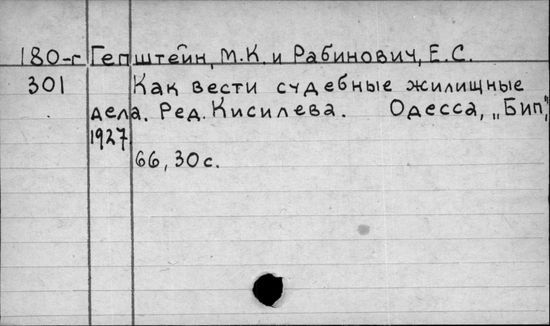 180-г Гепштейн, М.К. и Рабинович, Е.С.
301 Как вести судебные жилищные
дела. Ред. Кисилева. Одесса, „Бип",
1927
66, 30 с.